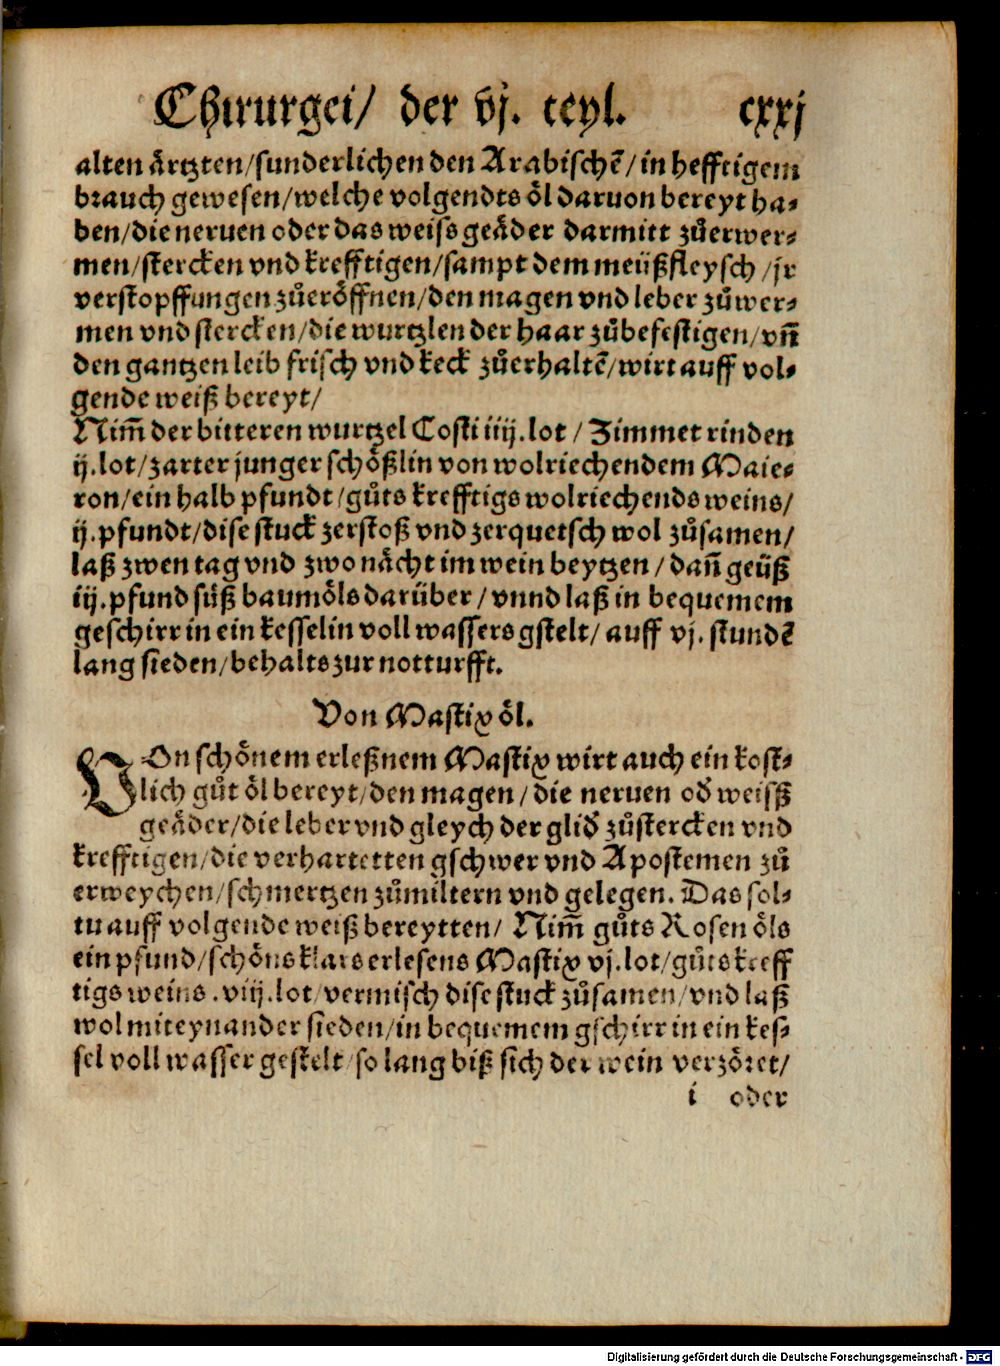 Chirurgei/ der vj. teyl. cxxj
alten ärtzten/sunderlichen den Arabischē/in hefftigem
brauch gewesen/welche volgendts öl daruon bereyt ha-
ben/die neruen oder das weiss geäder darmitt zůerwer-
men/stercken vnd krefftigen/sampt dem meüßfleysch/jr
verstopffungen zůeröffnen/den magen vnd leber zůwer-
men vnd stercken/die wurtzlen der haar zůbefestigen/vñ
den gantzen leib frisch vnd keck zůerhaltē/wirt auff vol-
gende weiß bereyt/
Nim̃ der bitteren wurtzel Costi iiij.lot/Zimmet rinden
ij.lot/zarter junger schößlin von wolriechendem Maie-
ron/ein halb pfundt/gůts krefftigs wolriechends weins/
ij.pfundt/dise stuck zerstoß vnd zerquetsch wol zůsamen/
laß zwen tag vnd zwo nächt im wein beytzen/dañ geüß
iij.pfund süß baumöls darüber/vnnd laß in bequemem
geschirr in ein kesselin voll wassers gstelt/auff vj. stundē
lang sieden/behalts zur notturfft.
Von Mastix öl.
VOn schönem erleßnem Mastix wirt auch ein kost-
lich gůt öl bereyt/den magen/die neruen oď weisß
geäder/die leber vnd gleych der gliď zůstercken vnd
krefftigen/die verhartetten gschwer vnd Apostemen zů
erweychen/schmertzen zůmiltern vnd gelegen. Das sol-
tu auff volgende weiß bereytten/ Nim̃ gůts Rosen öls
ein pfund/schöns klars erlesens Mastix vj.lot/gůts kreff
tigs weins .viij.lot/vermisch dise stuck zůsamen/vnd laß
wol miteynander sieden/in bequemem gschirr in ein kes-
sel voll wasser gestelt/so lang biß sich der wein verzöret/
i oder
Digitalisierung gefördert durch die Deutsche Forschungsgemeinschaft - DFG